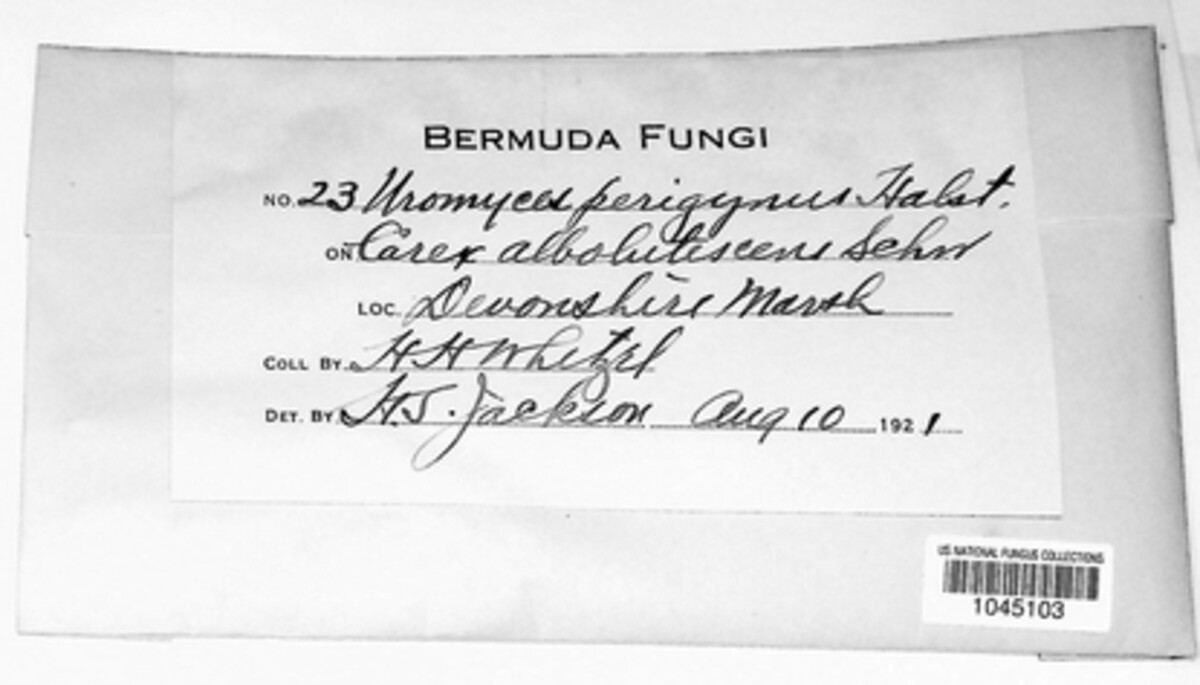 BERMUDA FUNGI
NO. 23 Uromyces perigynus Halst.
ON Carex albolutescens Schw
LOC. Devonshire Marsh
COLL BY. H H Whetzel
DET. BY H.S. Jackson Aug 10 1921
US NATIONAL FUNGUS COLLECTIONS
1045103